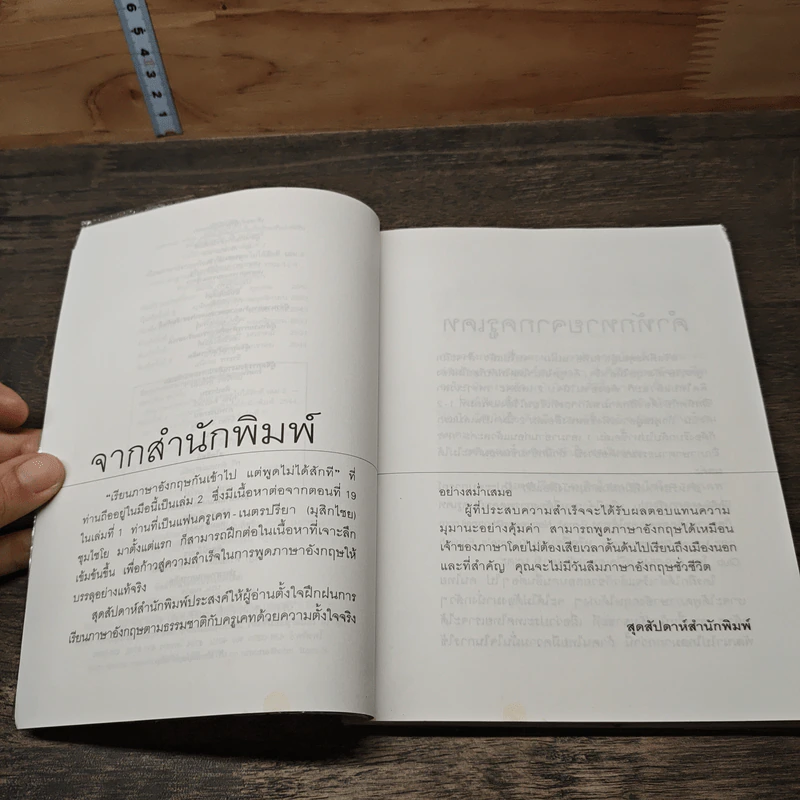 6
5
4
3
2
1
จากสำนักพิมพ์
"เรียนภาษาอังกฤษกันเข้าไป แต่พูดไม่ได้สักที" ที่
ท่านถืออยู่ในมือนี้เป็นเล่ม 2 ซึ่งมีเนื้อหาต่อจากตอนที่ 19
ในเล่มที่ 1 ท่านที่เป็นแฟนครูเคท-เนตรปรียา (มุสิกไชย)
ชุมไชโย มาตั้งแต่แรก ก็สามารถฝึกต่อในเนื้อหาที่เจาะลึก
เข้มข้นขึ้น เพื่อก้าวสู่ความสำเร็จในการพูดภาษาอังกฤษให้
บรรลุอย่างแท้จริง
สุดสัปดาห์สำนักพิมพ์ประสงค์ให้ผู้อ่านตั้งใจฝึกฝนการ
เรียนภาษาอังกฤษตามธรรมชาติกับครูเคทด้วยความตั้งใจจริง
อย่างสม่ำเสมอ
ผู้ที่ประสบความสำเร็จจะได้รับผลตอบแทนความ
มุมานะอย่างคุ้มค่า สามารถพูดภาษาอังกฤษได้เหมือน
เจ้าของภาษาโดยไม่ต้องเสียเวลาดั้นด้นไปเรียนถึงเมืองนอก
และที่สำคัญ คุณจะไม่มีวันลืมภาษาอังกฤษชั่วชีวิต
สุดสัปดาห์สำนักพิมพ์